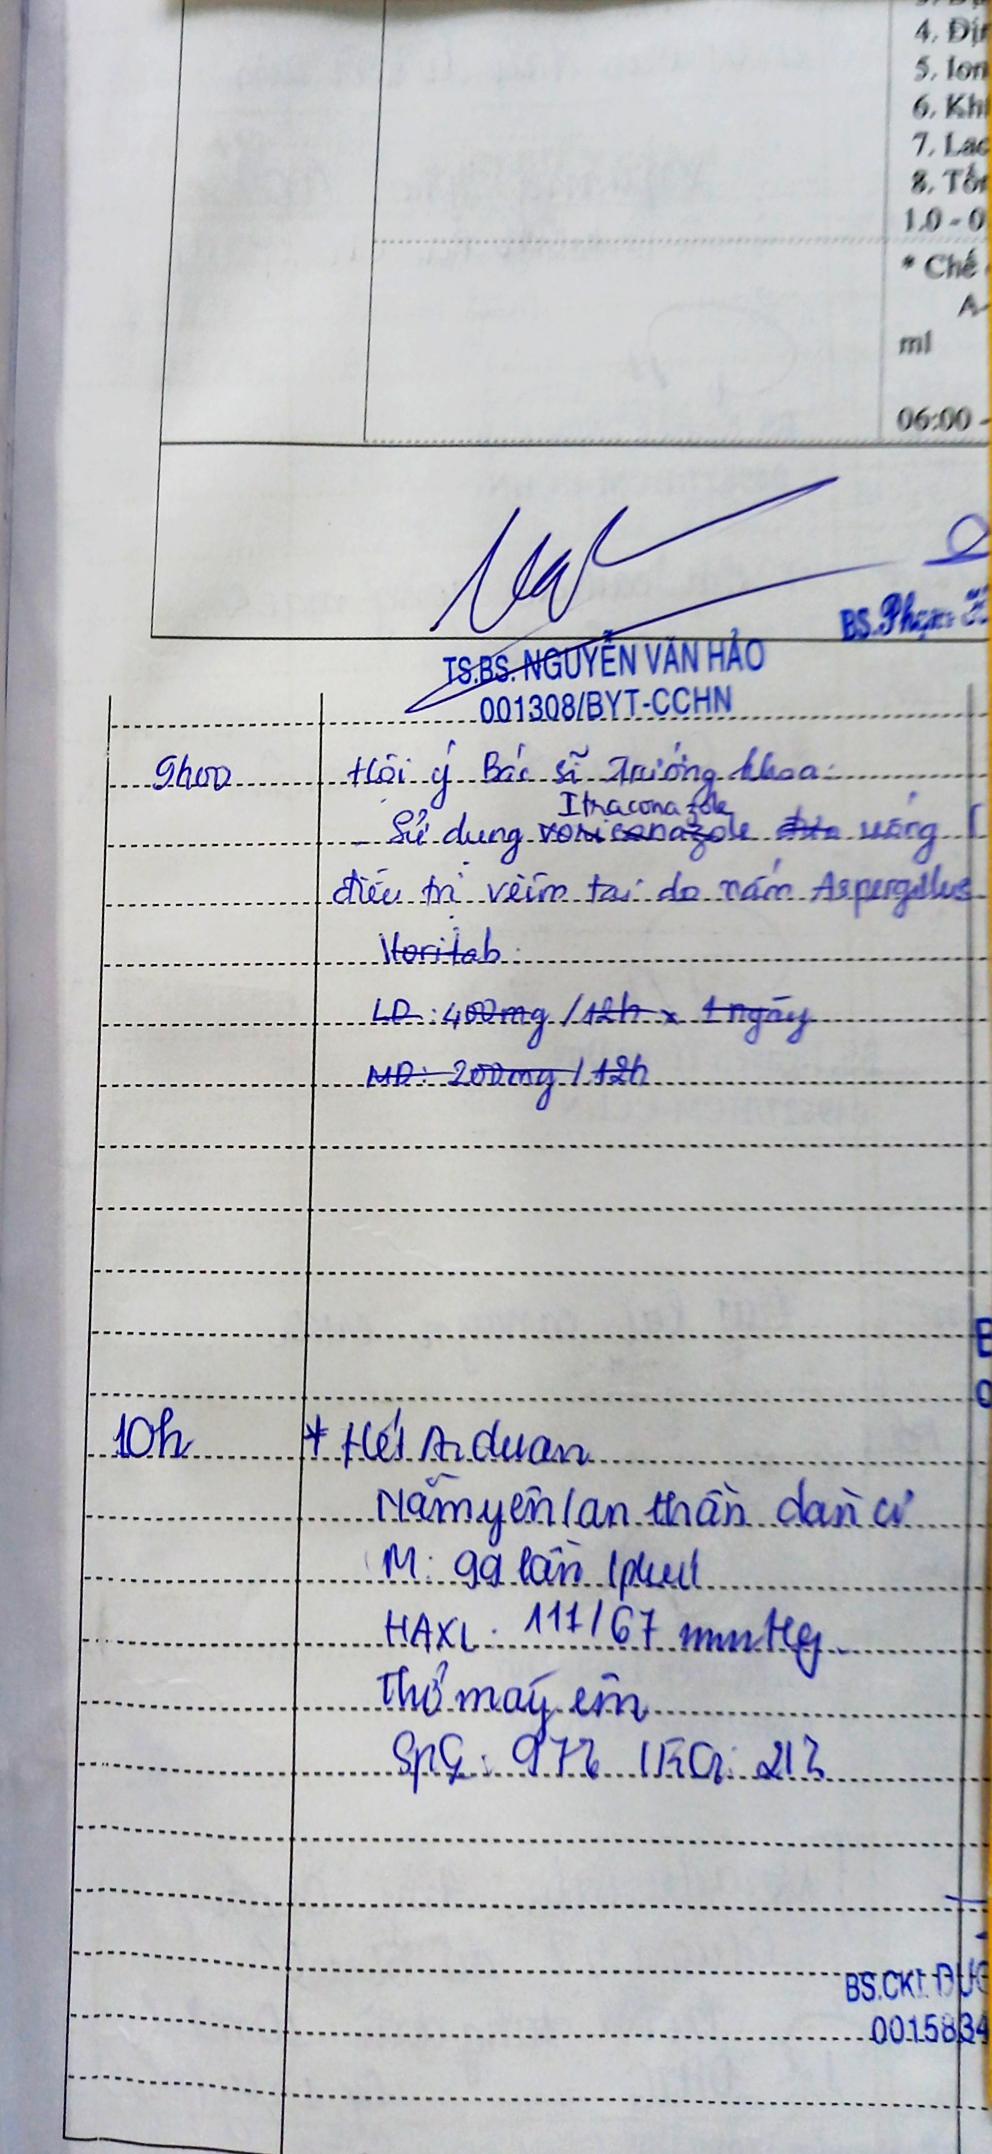 4. Địn
5. Ion
6. Khí
7. Lac
8. Tổn
1.0 - 0
* Chế
A-
ml
06:00 -
BS. Phạm
TS.BS. NGUYỄN VĂN HẢO
001308/BYT-CCHN
9h00 Hội ý Bác sĩ Trưởng khoa:
Itraconazole
- Sử dụng voriconazole đưa uống
điều trị viêm tai do nấm Aspergillus
Voritab:
LD: 400mg /12h x 1 ngày
MD: 200mg / 12h
10h * Hết Arduan
Nằm yên/an thần dãn cơ
M: 99 lần /phút
HAXL: 111/67 mmHg
Thở máy êm
BS.CKI. ĐỨC
0015834